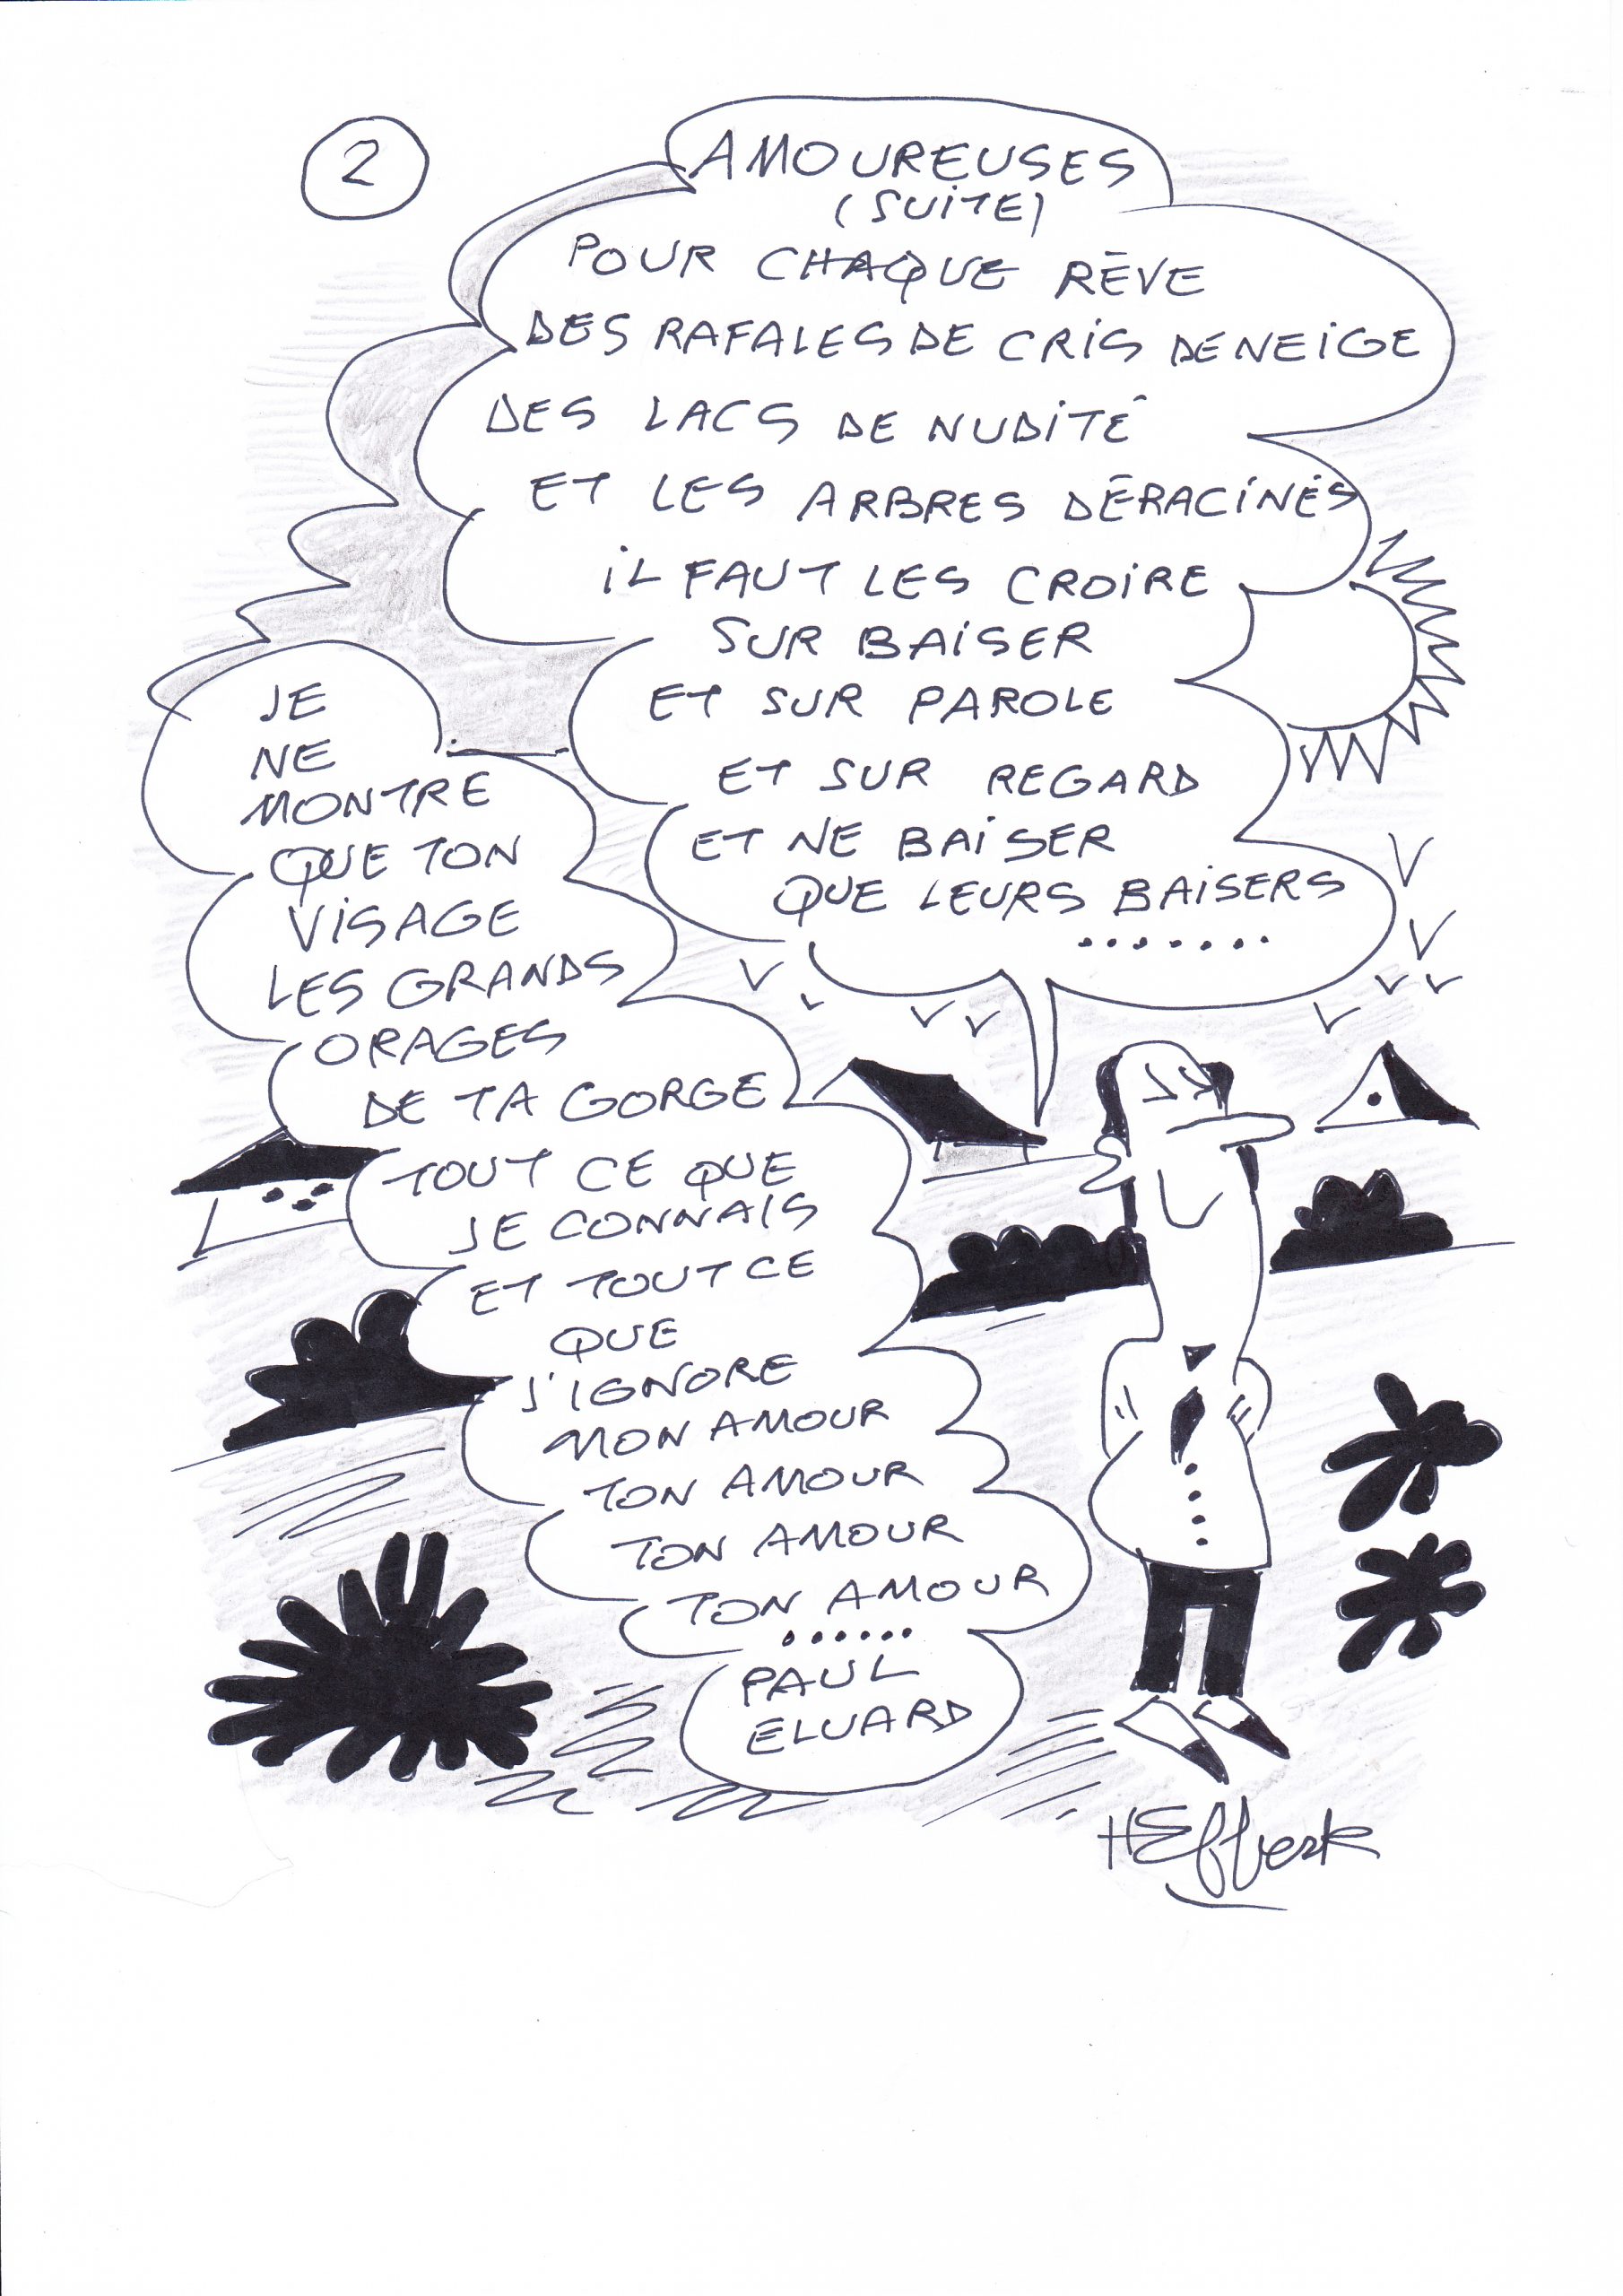 2
AMOUREUSES
(SUITE)
POUR CHAQUE RÊVE
DES RAFALES DE CRIS DE NEIGE
DES LACS DE NUDITÉ
ET LES ARBRES DÉRACINÉS
IL FAUT LES CROIRE
SUR BAISER
ET SUR PAROLE
ET SUR REGARD
ET NE BAISER
QUE LEURS BAISERS
.......
JE
NE
MONTRE
QUE TON
VISAGE
LES GRANDS
ORAGES
DE TA GORGE
TOUT CE QUE
JE CONNAIS
ET TOUT CE
QUE
J'IGNORE
MON AMOUR
TON AMOUR
TON AMOUR
TON AMOUR
......
PAUL
ELUARD